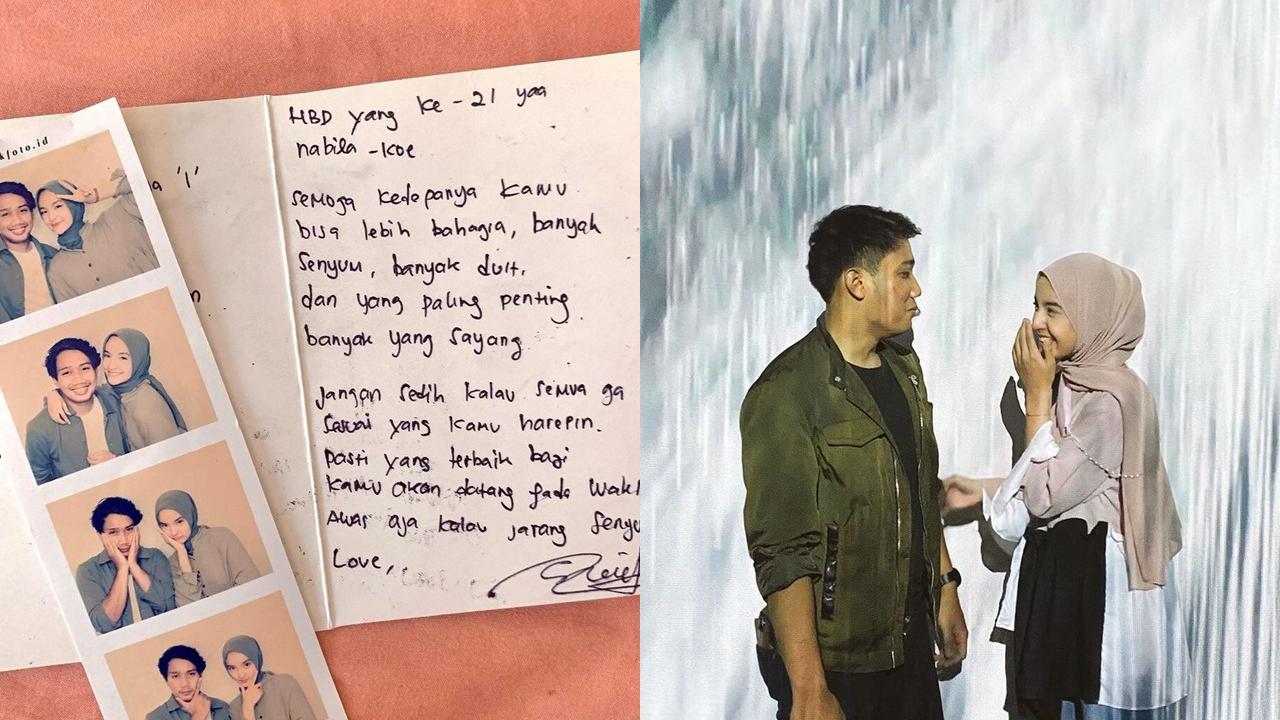 kfoto.id
a '1'
n
HBD yang ke-21 yaa
nabila -koe
semoga kedepanya kamu
bisa lebih bahagia, banyak
senyum, banyak duit,
dan yang paling penting
banyak yang sayang
jangan sedih kalau semua ga
sesuai yang kamu harepin.
pasti yang terbaik bagi
kamu akan datang pada wakt
Awas aja kalau jarang senyu
Love,